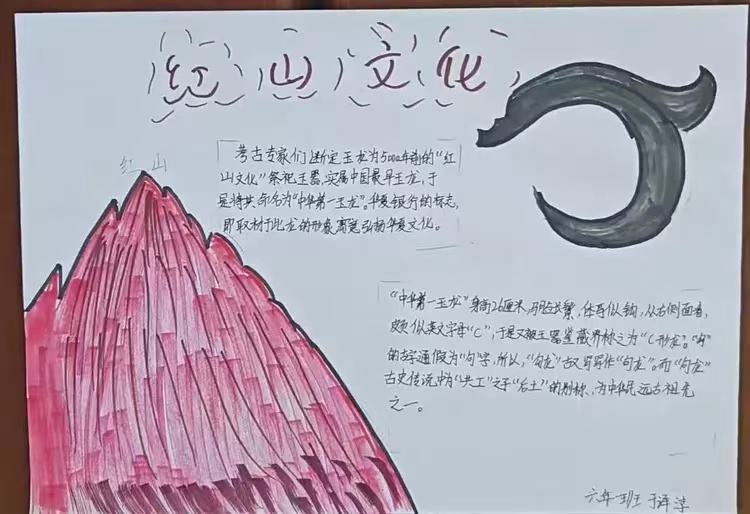 红山文化
红山
考古专家们断定玉龙为5000年前的“红
山文化”祭祀玉器，实属中国最早玉龙，于
是将其命名为“中华第一玉龙”。华夏银行的标志，
即取材于此龙的形象，寓意弘扬华夏文化。
“中华第一玉龙”身高26厘米，体弯似钩，从右侧面看，
颇似英文字母“C”，于是又被玉器鉴藏界称之为“C形龙”。
的古字通假为“句”字，所以，“勾龙”古又可写作“句龙”。而“句龙”
古史传说中为“共工”之子“后土”的别称，为中华民远古祖先
之一。
六年班